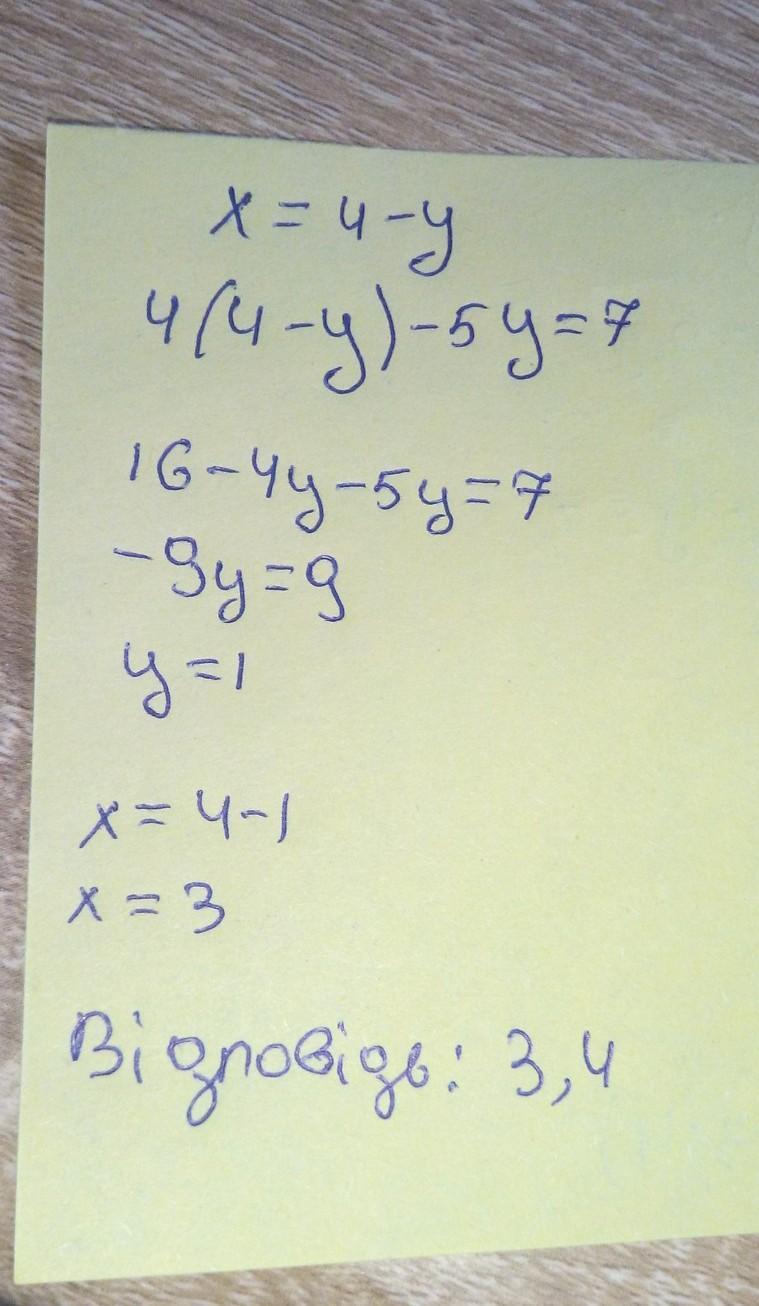 x = 4 - y
4(4 - y) - 5y = 7
16 - 4y - 5y = 7
- 9y = 9
y = 1
x = 4 - 1
x = 3
Відповідь: 3,4